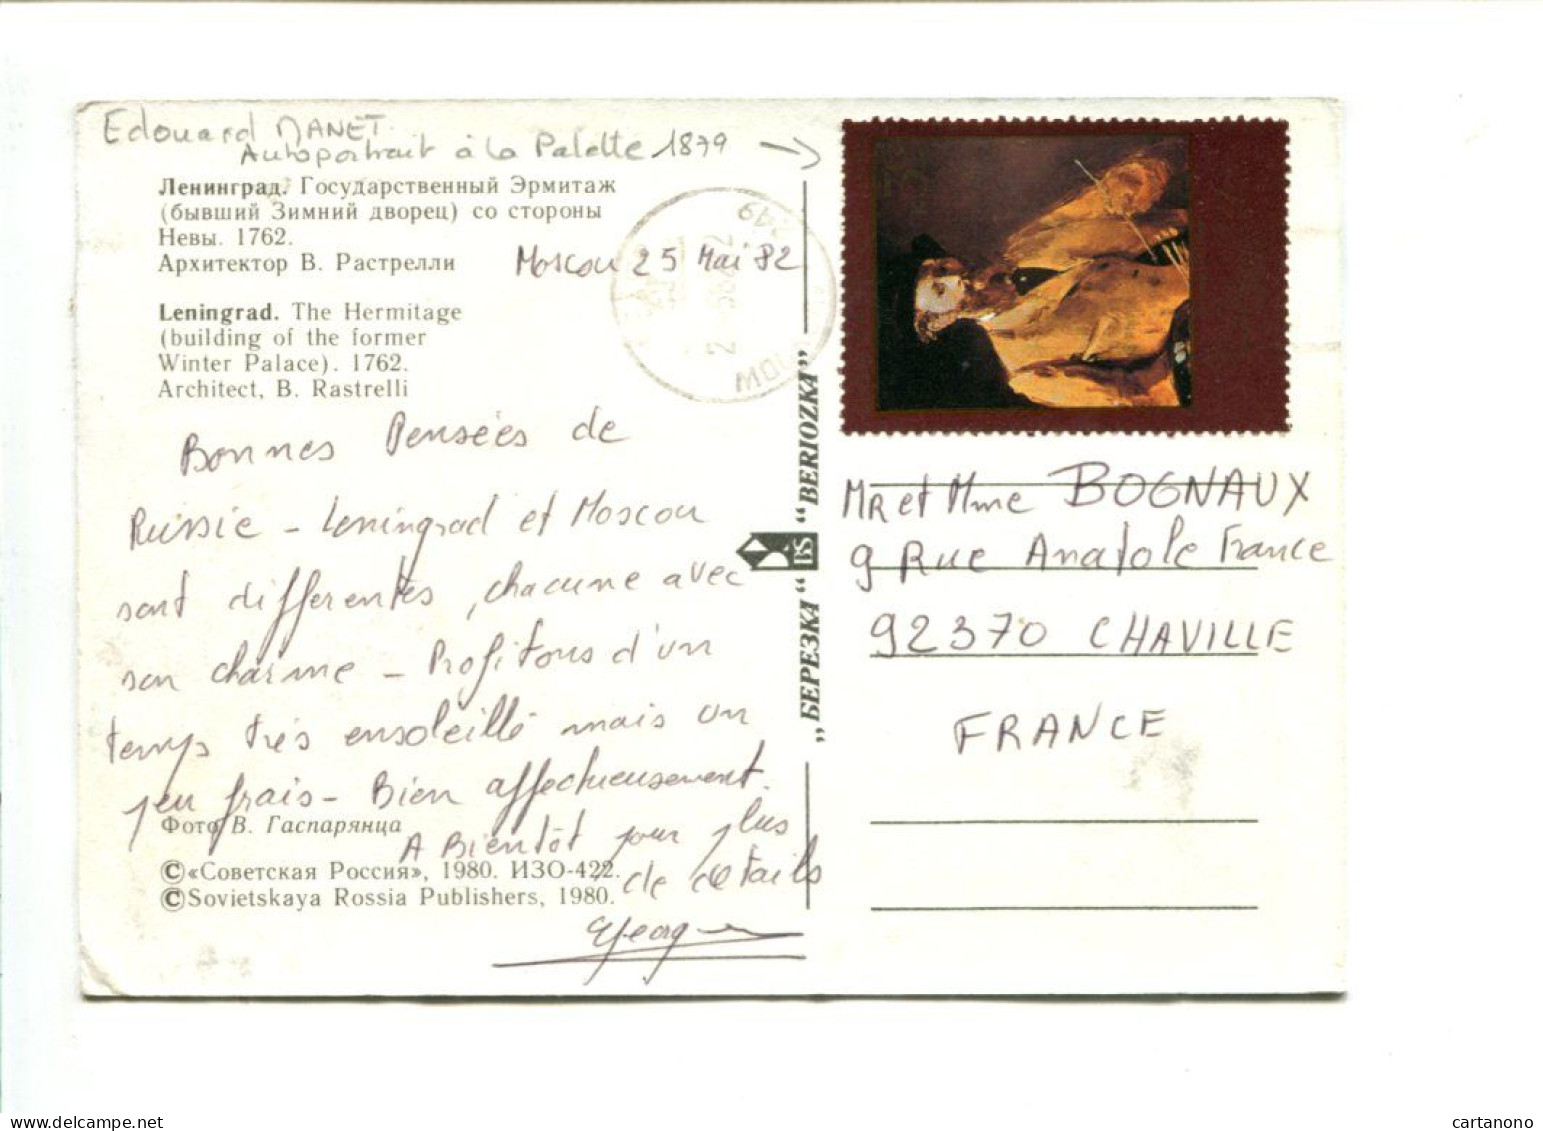 Edouard MANET
Autoportrait à la Palette 1879 →
Ленинград. Государственный Эрмитаж
(бывший Зимний дворец) со стороны
Невы. 1762.
Архитектор В. Растрелли
Moscou 25 Mai 82
Leningrad. The Hermitage
(building of the former
Winter Palace). 1762.
Architect, B. Rastrelli
Bonnes Pensées de
Russie - Leningrad et Moscou
sont différentes, chacune avec
son charme - Profitons d'un
temps très ensoleillé mais un
peu frais - Bien affectueusement.
A Bientôt pour plus
de détails
Фото В. Гаспарянца
©«Советская Россия», 1980. ИЗО-422.
©Sovietskaya Rossia Publishers, 1980.
„БЕРЕЗКА“ BS “BERIOZKA”
MR et Mme BOGNAUX
9 Rue Anatole France
92370 CHAVILLE
FRANCE
delcampe.net
cartanono